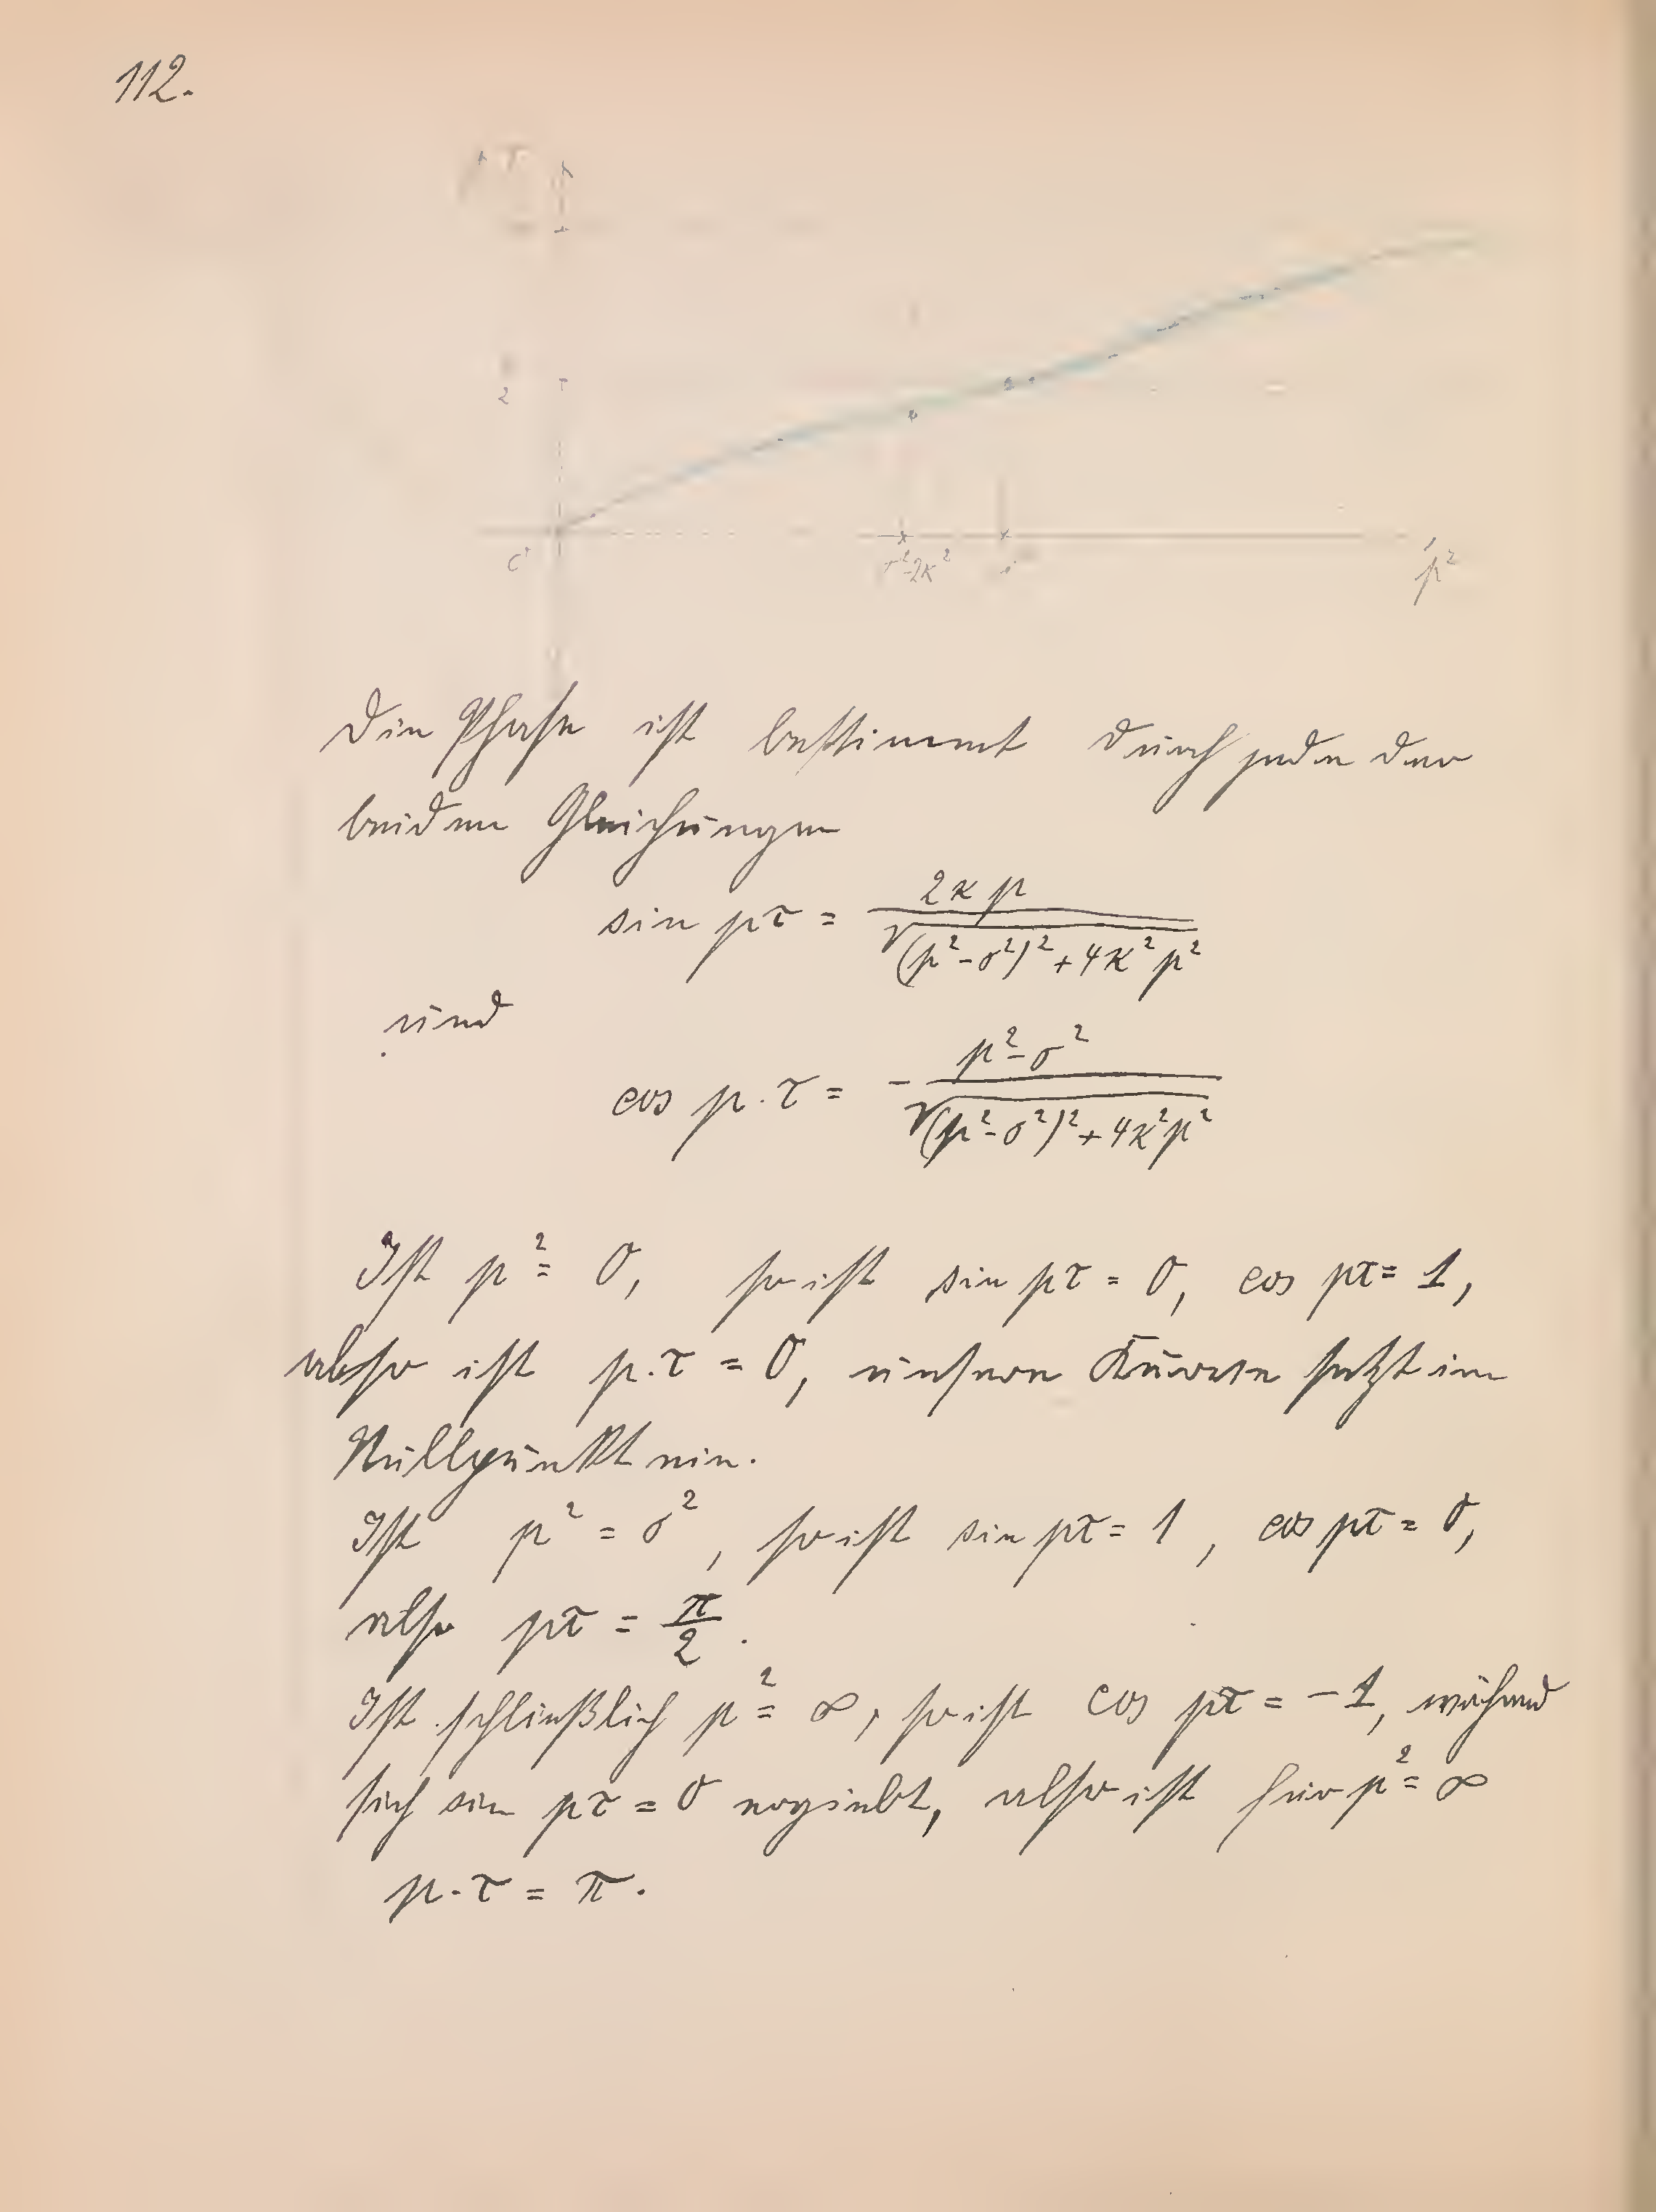 112.
2
σ²-2κ²
p²
Die Phase ist bestimmt durch jede der
beiden Gleichungen
sin pτ = 2κp / √((p²-σ²)²+4κ²p²)
und
cos p.τ = - (p²-σ²) / √((p²-σ²)²+4κ²p²)
Ist p² = 0, so ist sin pτ = 0, cos pτ = 1,
also ist p.τ = 0, unsere Kurve setzt im
Nullpunkt ein.
Ist p² = σ², so ist sin pτ = 1, cos pτ = 0,
also pτ = π/2.
Ist schließlich p² = ∞, so ist cos pτ = -1, während
sich sin pτ = 0 ergiebt, also ist für p² = ∞
p.τ = π.